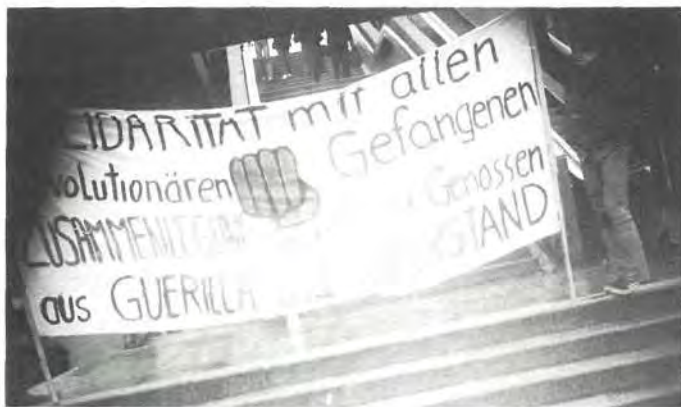 LIDARITÄT mit allen
volutionären Gefangenen
ZUSAMMENLEGUNG Genossen
aus GUERILLA STAND